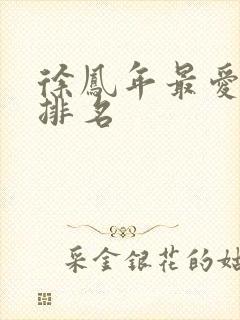 徐鳳年最愛
排名
采金銀花的姑